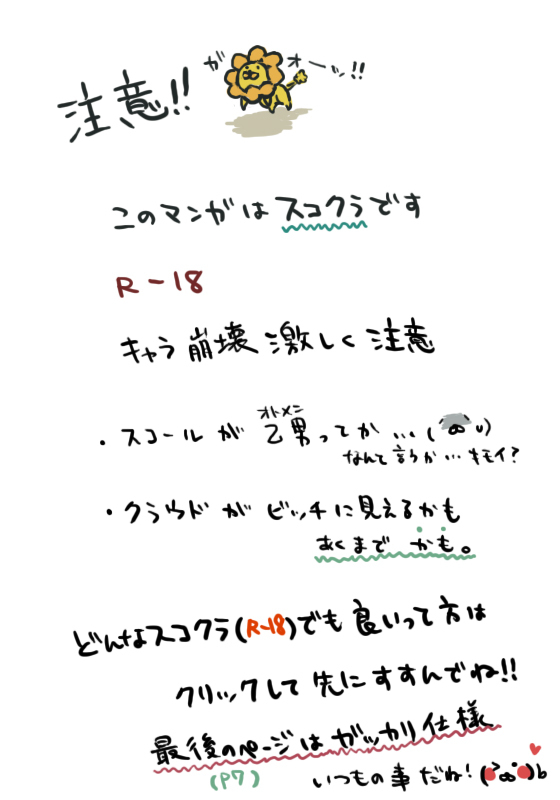 ガオーッ!!
注意!!
このマンガはスコクラです
R-18
キャラ崩壊激しく注意
・スコールが乙男ってか…(´ω`υ)
オトメン
なんて言うか…キモイ?
・クラウドがビッチに見えるかも
あくまで かも。
どんなスコクラ(R-18)でも良いって方は
クリックして先にすすんでね!!
最後のページはガッカリ仕様
(P7)
いつもの事だね!